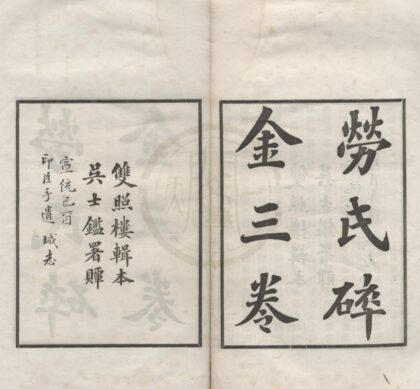 勞氏碎
金三卷
雙照樓輯本
吳士鑑署贉
宣統己酉
印臣手遺志